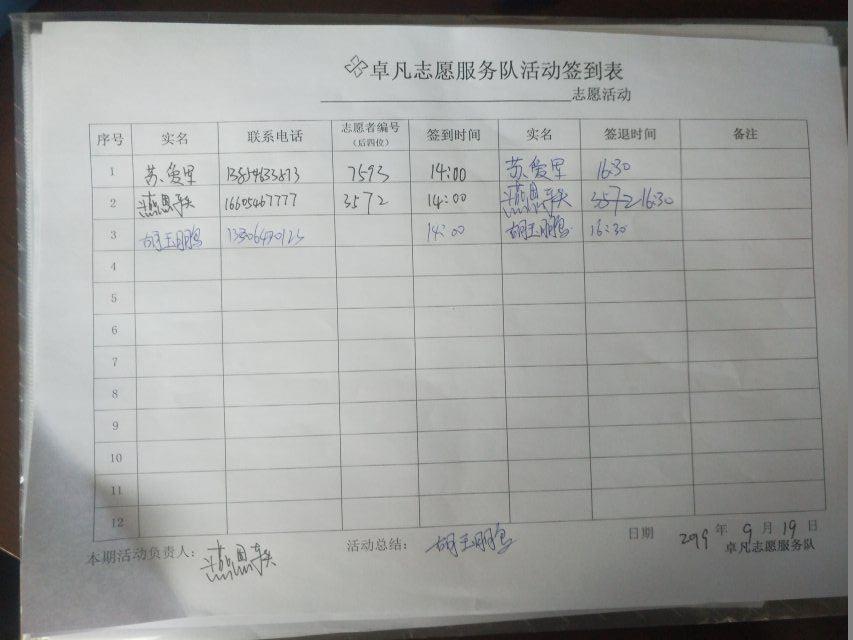 卓凡志愿服务队活动签到表
志愿活动
序号 实名 联系电话 志愿者编号(后四位) 签到时间 实名 签退时间 备注
1 苏爱军 7593 14:00 苏爱军 16:30
2 燕恩 16605467777 3572 14:00 燕恩 3572 16:30
3 胡玉鹏 14:00 胡玉鹏 16:30
4
5
6
7
8
9
10
11
12
本期活动负责人: 燕恩 活动总结: 胡玉鹏 日期 2019 年 9 月 19 日
卓凡志愿服务队